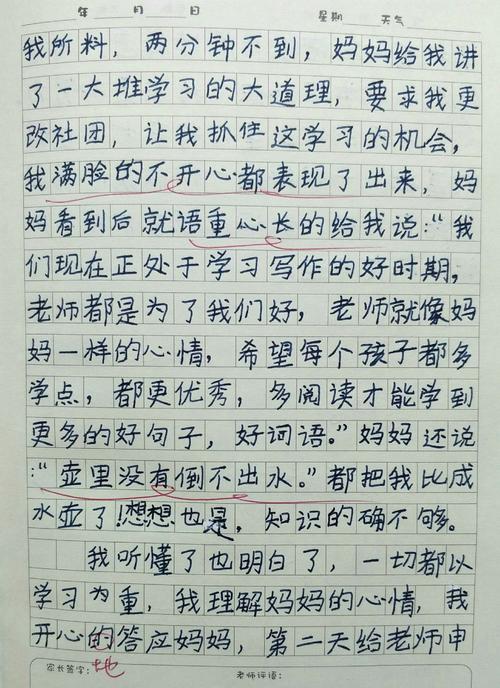 年 月 日 星期 天气
我所料，两分钟不到，妈妈给我讲
了一大堆学习的大道理，要求我更
改社团，让我抓住这学习的机会，
我满脸的不开心都表现了出来，妈
妈看到后就语重心长的给我说：“我
们现在正处于学习写作的好时期，
老师都是为了我们好，老师就像妈
妈一样的心情，希望每个孩子都多
学点，都更优秀，多阅读才能学到
更多的好句子，好词语。”妈妈还说
：“壶里没有倒不出水。”都把我比成
水壶了！想想也是，知识的确不够。
我听懂了也明白了，一切都以
学习为重，我理解妈妈的心情，我
开心的答应妈妈，第二天给老师申
家长签字： 地 老师评语：